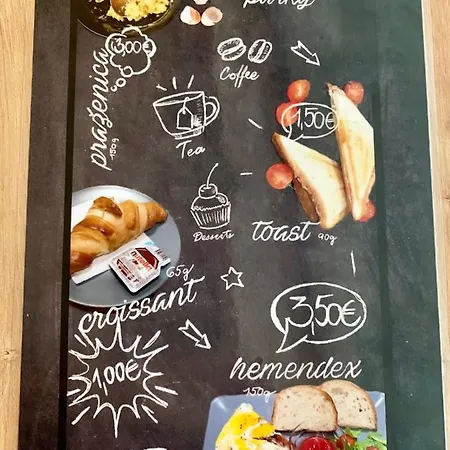 3,00€
praženica
150g
Coffee
Tea
1,50€
Desserts
toast 90g
65g
croissant
3,50€
1,00€
hemendex
150g